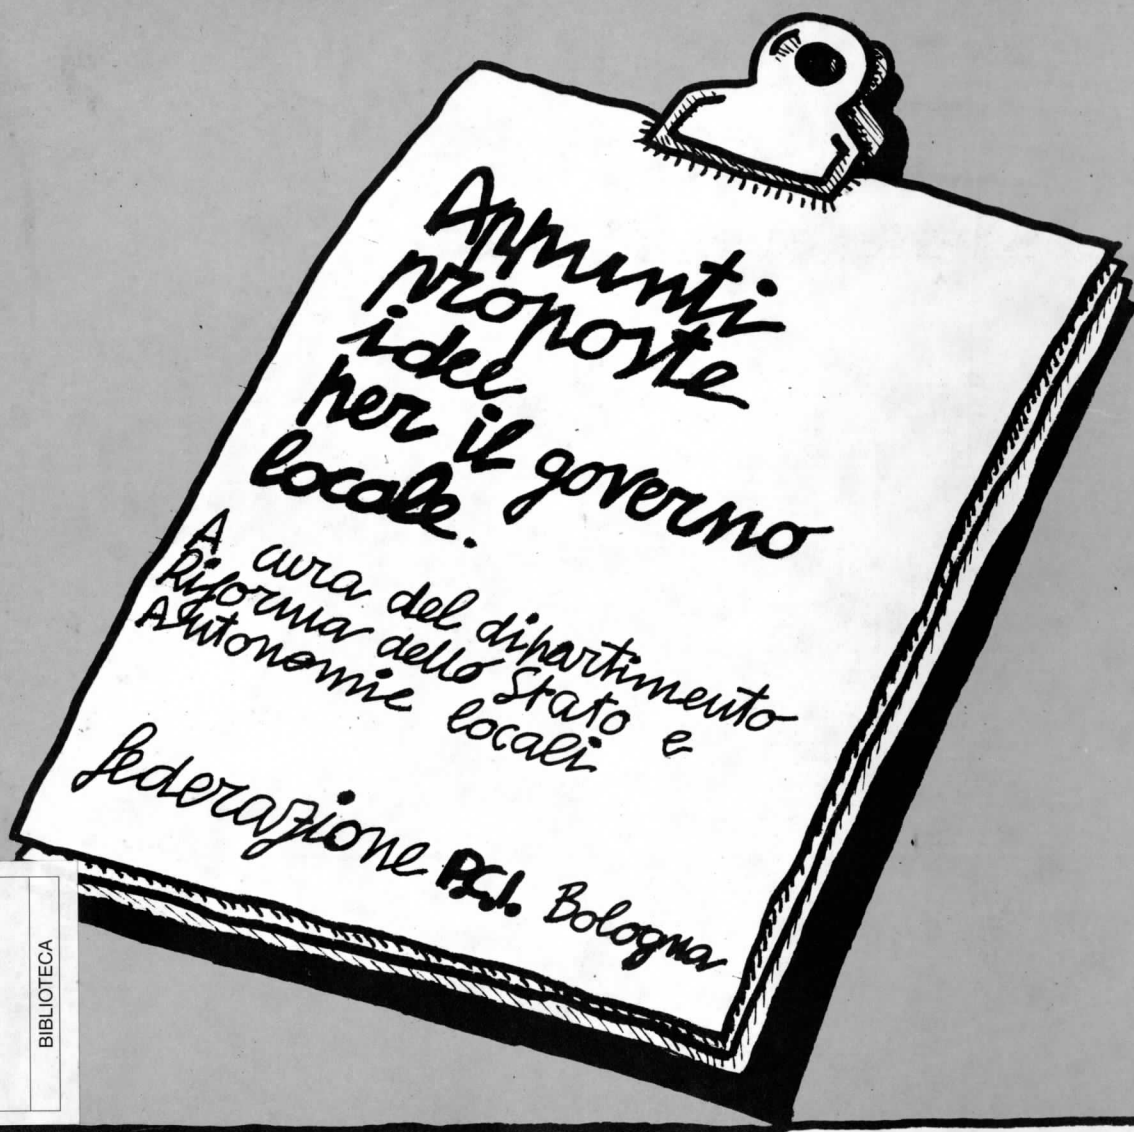 Appunti
proposte
idee
per il governo
locale.
A cura del dipartimento
Riforma dello Stato e
Autonomie locali
federazione P.C.I. Bologna
BIBLIOTECA